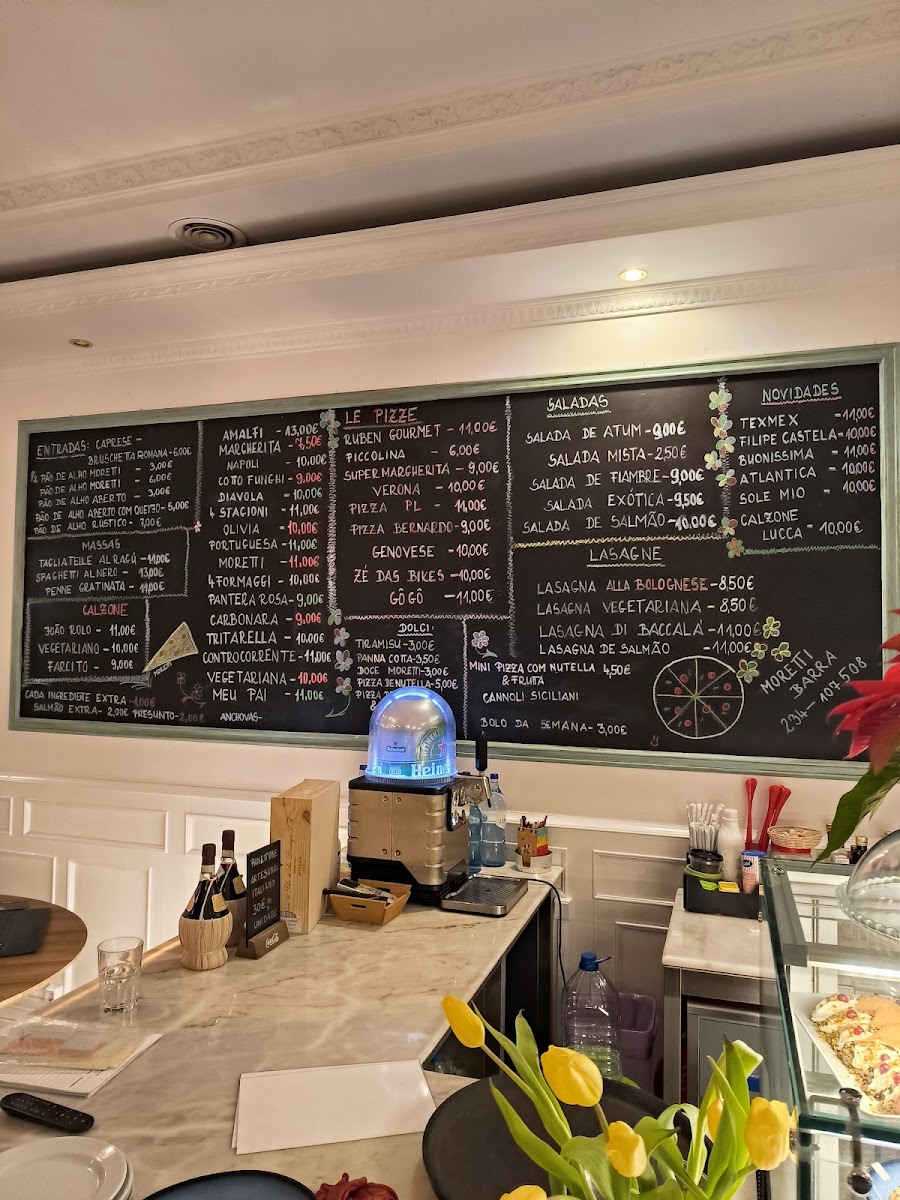 ENTRADAS: CAPRESE -
BRUSCHETTA ROMANA-6,00€
½ PÃO DE ALHO MORETTI - 3,00€
PÃO DE ALHO MORETTI - 6,00€
PÃO DE ALHO ABERTO - 3,00€
PÃO DE ALHO ABERTO COM QUEIJO-5,00€
PÃO DE ALHO RÚSTICO - 7,00€
MASSAS
TAGLIATELLE AL RAGÚ-11,00€
SPAGHETTI AL NERO - 13,00€
PENNE GRATINATA - 11,00€
CALZONE
JOÃO ROLO - 11,00€
VEGETARIANO - 10,00€
FARCITO - 9,00€
CADA INGREDIENTE EXTRA-1,00€
SALMÃO EXTRA-2,00€ PRESUNTO-2,00€ ANCHOVAS-
AMALFI - 13,00€
MARGHERITA - 7,50€
NAPOLI - 10,00€
COTTO FUNGHI - 9,00€
DIAVOLA - 10,00€
4 STAGIONI - 11,00€
OLIVIA - 10,00€
PORTUGUESA - 11,00€
MORETTI - 11,00€
4 FORMAGGI - 10,00€
PANTERA ROSA - 9,00€
CARBONARA - 9,00€
TRITARELLA - 10,00€
CONTROCORRENTE - 11,00€
VEGETARIANA - 10,00€
MEU PAI - 11,00€
LE PIZZE
RUBEN GOURMET - 11,00€
PICCOLINA - 6,00€
SUPERMARGHERITA - 9,00€
VERONA - 10,00€
PIZZA PL - 11,00€
PIZZA BERNARDO-9,00€
GENOVESE - 10,00€
ZÉ DAS BIKES - 10,00€
GÔGÔ - 11,00€
DOLCI
TIRAMISU-3,00€
PANNA COTTA-3,50€
DOCE MORETTI-3,00€
PIZZA DE NUTELLA-5,00€
MINI PIZZA COM NUTELLA 4,50€
& FRUTA
CANNOLI SICILIANI
BOLO DA SEMANA-3,00€
SALADAS
SALADA DE ATUM-9,00€
SALADA MISTA-2,50€
SALADA DE FIAMBRE-9,00€
SALADA EXÓTICA-9,50€
SALADA DE SALMÃO-10,00€
LASAGNE
LASAGNA ALLA BOLOGNESE-8,50€
LASAGNA VEGETARIANA - 8,50€
LASAGNA DI BACCALÀ-11,00€
LASAGNA DE SALMÃO -11,00€
MORETTI
BARRA
234-107508
NOVIDADES
TEXMEX -11,00€
FILIPE CASTELA-10,00€
BUONISSIMA - 11,00€
ATLANTICA - 10,00€
SOLE MIO - 10,00€
CALZONE
LUCCA - 10,00€
Heineken
Heine
PANETTONE
ARTESANAL
ITALIANO
30€
UNIDADE
Coca-Cola